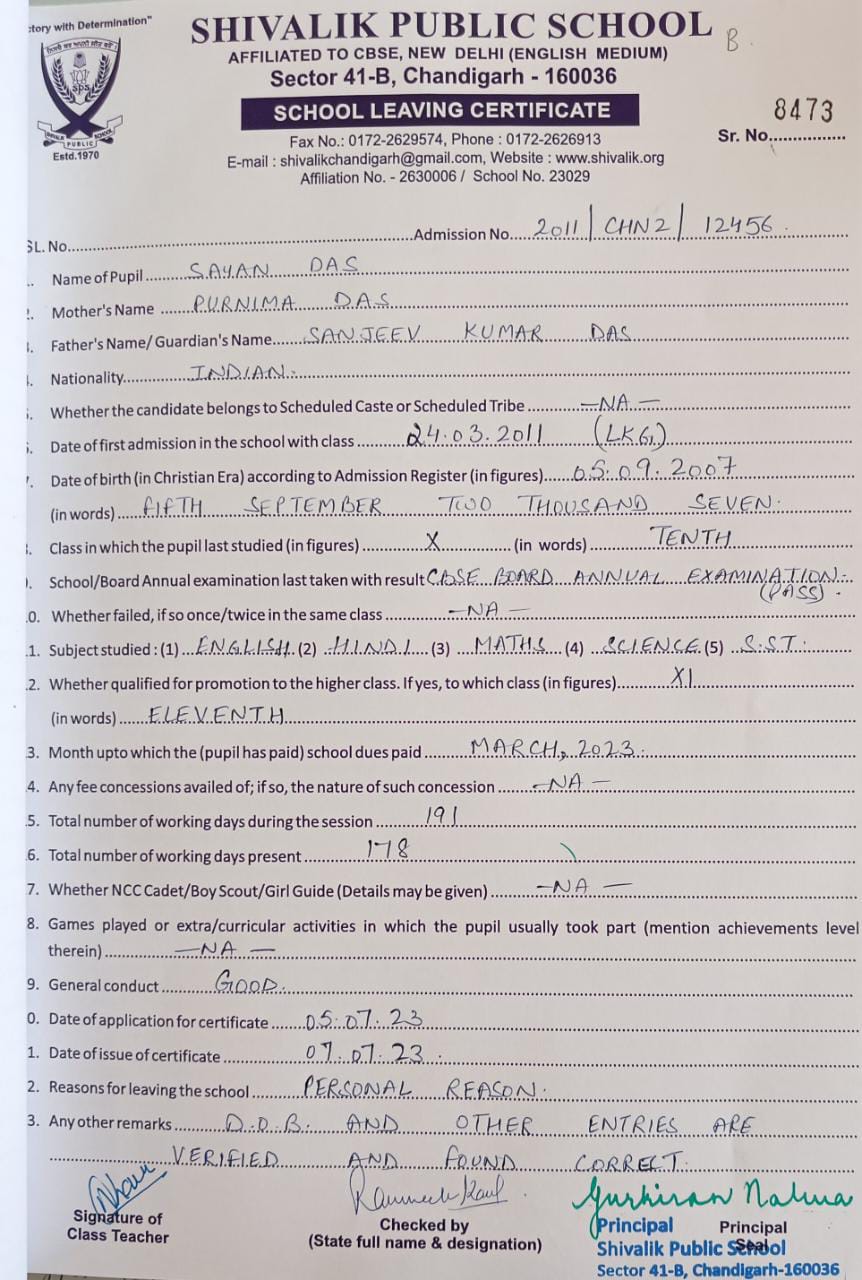 tory with Determination"
SHIVALIK PUBLIC SCHOOL
B
AFFILIATED TO CBSE, NEW DELHI (ENGLISH MEDIUM)
Sector 41-B, Chandigarh - 160036
SCHOOL LEAVING CERTIFICATE
8473
Sr. No...............
SPS
SHIVALIK PUBLIC SCHOOL
Estd.1970
Fax No.: 0172-2629574, Phone : 0172-2626913
E-mail : shivalikchandigarh@gmail.com, Website : www.shivalik.org
Affiliation No. - 2630006 / School No. 23029
SL. No. Admission No. 2011 / CHN2 / 12456.
Name of Pupil SAYAN DAS
Mother's Name PURNIMA DAS
Father's Name/ Guardian's Name SANJEEV KUMAR DAS
Nationality INDIAN.
Whether the candidate belongs to Scheduled Caste or Scheduled Tribe —NA—
Date of first admission in the school with class 24.03.2011 (LKG)
Date of birth (in Christian Era) according to Admission Register (in figures) 05.09.2007
(in words) FIFTH SEPTEMBER TWO THOUSAND SEVEN.
Class in which the pupil last studied (in figures) X (in words) TENTH
School/Board Annual examination last taken with result CBSE BOARD ANNUAL EXAMINATION.
(PASS).
0. Whether failed, if so once/twice in the same class —NA—
1. Subject studied : (1) ENGLISH (2) HINDI (3) MATHS (4) SCIENCE (5) S.ST.
2. Whether qualified for promotion to the higher class. If yes, to which class (in figures) XI
(in words) ELEVENTH
3. Month upto which the (pupil has paid) school dues paid MARCH, 2023.
4. Any fee concessions availed of; if so, the nature of such concession —NA—
5. Total number of working days during the session 191
6. Total number of working days present 178
7. Whether NCC Cadet/Boy Scout/Girl Guide (Details may be given) —NA—
8. Games played or extra/curricular activities in which the pupil usually took part (mention achievements level
therein) —NA—
9. General conduct GOOD.
0. Date of application for certificate 05.07.23
1. Date of issue of certificate 07.07.23.
2. Reasons for leaving the school PERSONAL REASON.
3. Any other remarks D.O.B. AND OTHER ENTRIES ARE
VERIFIED AND FOUND CORRECT.
Gurkiran Nalwa
Signature of
Class Teacher
Checked by
(State full name & designation)
Principal
Principal
Seal
Shivalik Public School
Sector 41-B, Chandigarh-160036